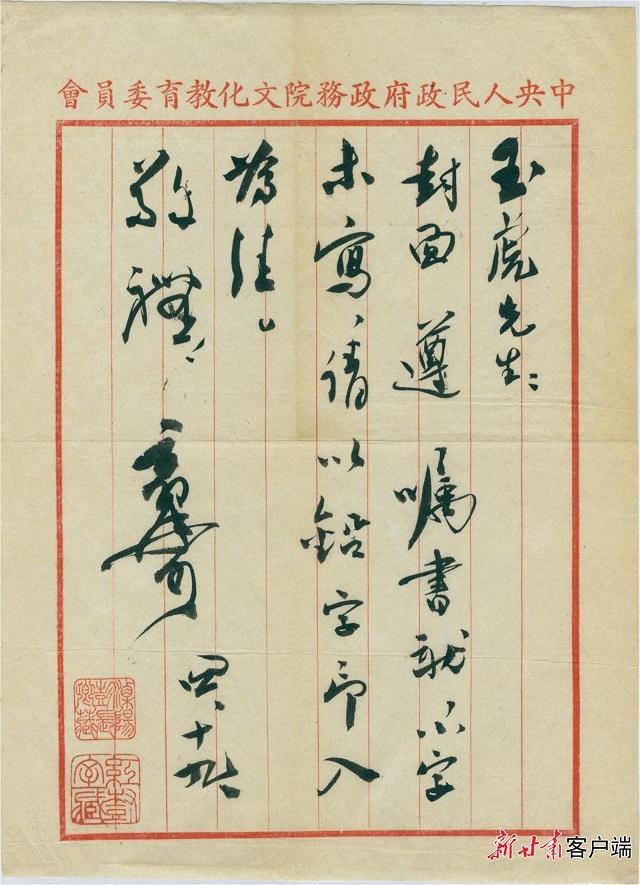 中央人民政府政務院文化教育委員會
玉虎先生：
封面遵嘱書就小字
未寫、請以鉛字印入
為佳。
敬禮、
郭沫若
四、十九
新甘肃客户端